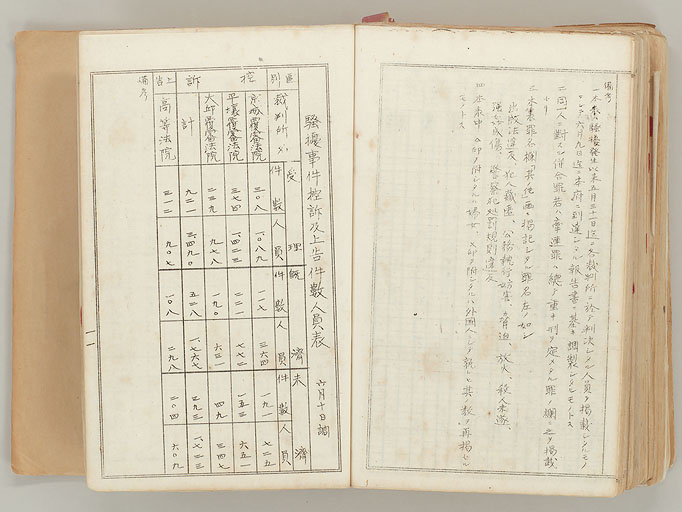 備考
一本表ハ騒擾発生以来五月三十一日迄ニ各裁判所ニ於テ判決シタル人員ヲ掲載シタルモノ
ニシテ六月九日迄ニ本府ニ到達シタル報告書ニ基キ調製シタルモノトス
二同一人ニ対スル併合罪若ハ牽連罪ハ総テ重キ刑ヲ定メタル罪ノ欄ニ之ヲ掲載
セリ
三本表罪名欄「其ノ他」ニ掲記シタル罪名左ノ如シ
出版法違反、犯人蔵匿、公務執行妨害、脅迫、放火、殺人未遂、
強盗傷、警察犯処罰規則違反
四本表中 印ヲ附シタルハ婦女 印ヲ附シタルハ外国人ニシテ其ノ数ヲ再掲シタル
モノトス
騒擾事件控訴及上告件数人員表 六月十日調
区別 裁判所名 受理 件数 人員 既済 件数 人員 未済 件数 人員
控訴 京城覆審法院 三〇八 一、〇八九 一一七 三六四 一九一 七二五
平壌覆審法院 三七四 一、四二三 二二一 七七二 一五三 六五一
大邱覆審法院 二三九 九七八 一九〇 六三一 四九 三四七
計 九二一 三、四九〇 五二八 一、七六七 三九三 一、七二三
上告 高等法院 三一二 九〇七 一〇八 二九八 二〇四 六〇九
備考
一一